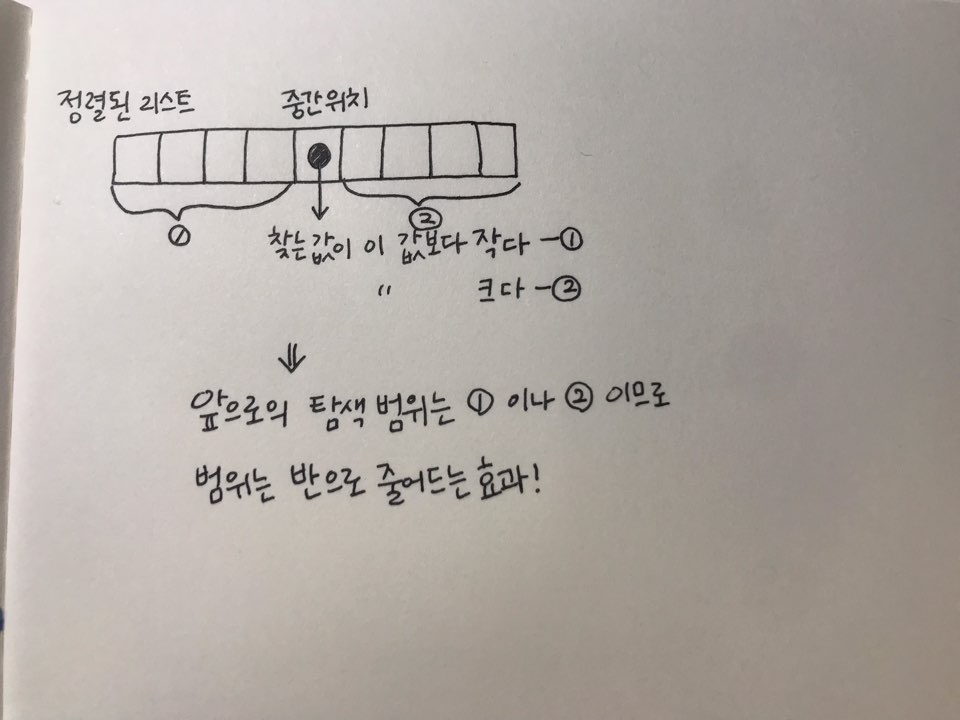 정렬된 리스트 중간위치
① ②
찾는값이 이 값보다 작다 - ①
〃 크다 - ②
⇓
앞으로의 탐색 범위는 ① 이나 ② 이므로
범위는 반으로 줄어드는 효과!